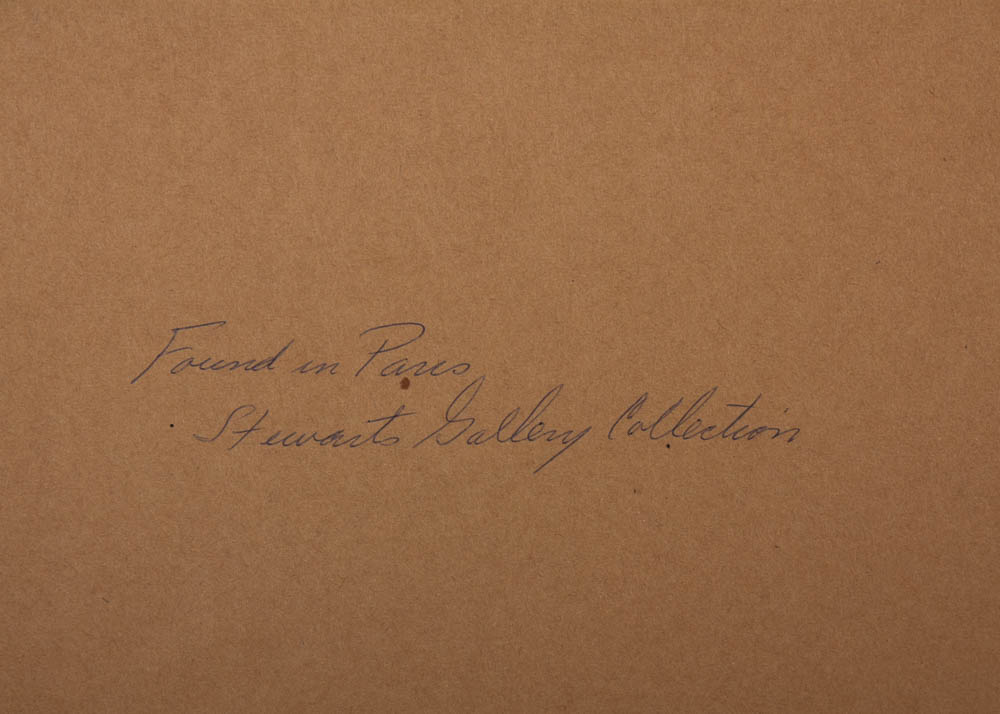 Found in Paris
Stewarts Gallery Collection